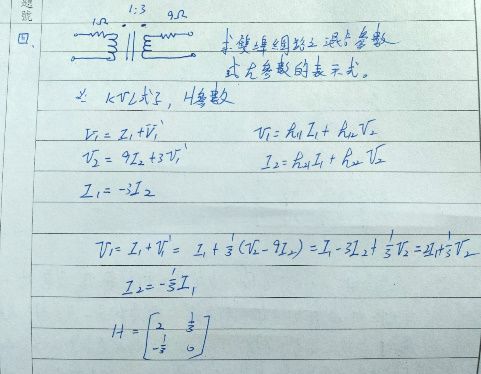 題
號
四、
1Ω 1:3 9Ω
求雙埠網路之混合參數
或尤參數的表示式。
KVL式子, H參數
V₁ = I₁ + V₁'
V₁ = h₁₁I₁ + h₁₂V₂
V₂ = 9I₂ + 3V₁'
I₂ = h₂₁I₁ + h₂₂V₂
I₁ = -3I₂
V₁ = I₁ + V₁' = I₁ + 1/3(V₂ - 9I₂) = I₁ - 3I₂ + 1/3V₂ = 2I₁ + 1/3V₂
I₂ = -1/3I₁
H = [2 1/3
-1/3 0]